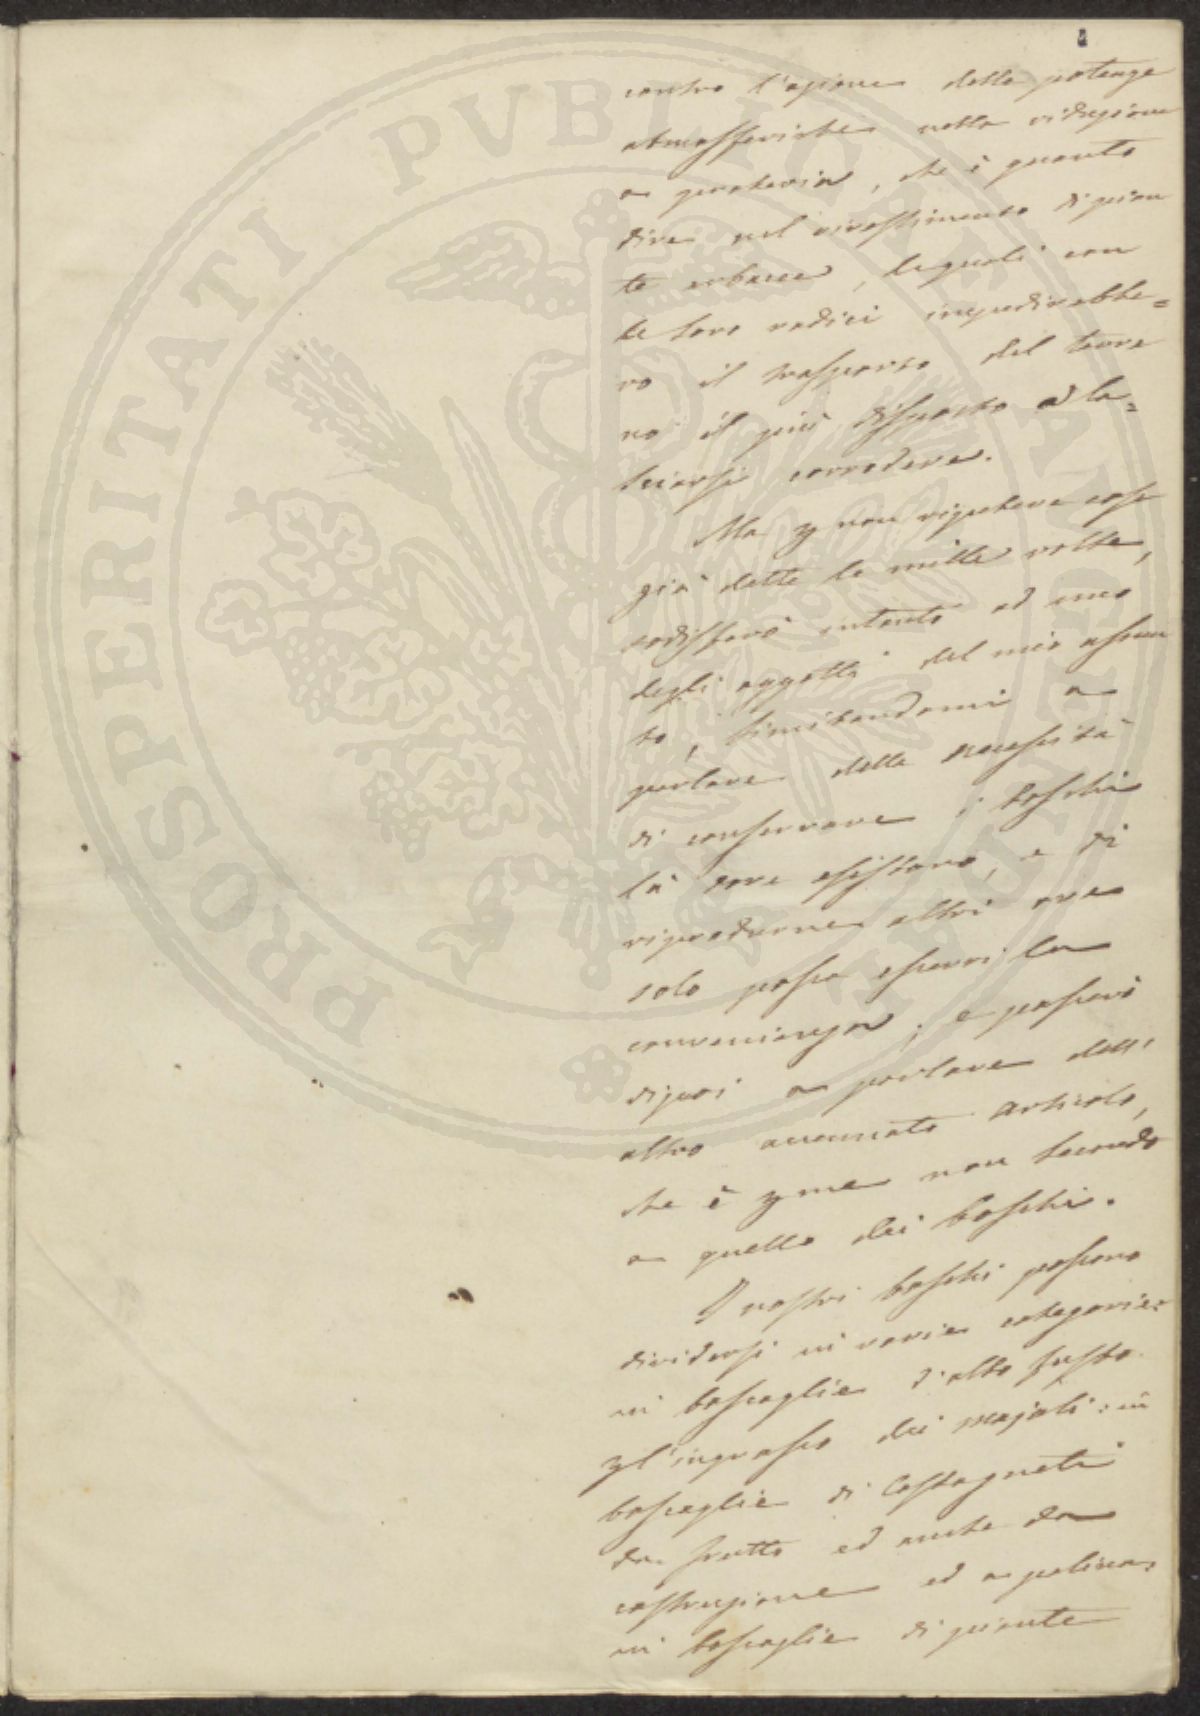 4
contro l'azione delle potenze
atmosferiche nella riduzione
a prateria, che è quanto
dire nel rivestimento di pian
te erbacee, le quali con
le loro radici impedirebbe=
ro il trasporto del terre
no il più disposto a la=
sciarsi corrodere.
Ma p non ripetere cose
già dette le mille volte,
sodisferò intanto ad uno
degli oggetti del mio assun
to, limitandomi a
parlare della necessità
di conservare i boschi
là dove esistono, e di
riprodurne altri ove
solo possa esservi la
convenienza; e passerò
dipoi a parlare dell'
altro accennato articolo,
che è p me non secondo
a quello dei boschi.
I nostri boschi possono
dividersi in varie categorie:
in boscaglie d'alto fusto
p l'ingrasso dei majali: in
boscaglie di Castagneti
da frutto ed anche da
costruzione ed a palina:
in boscaglie di piante
PROSPERITATI PVBLICAE AVGENDAE